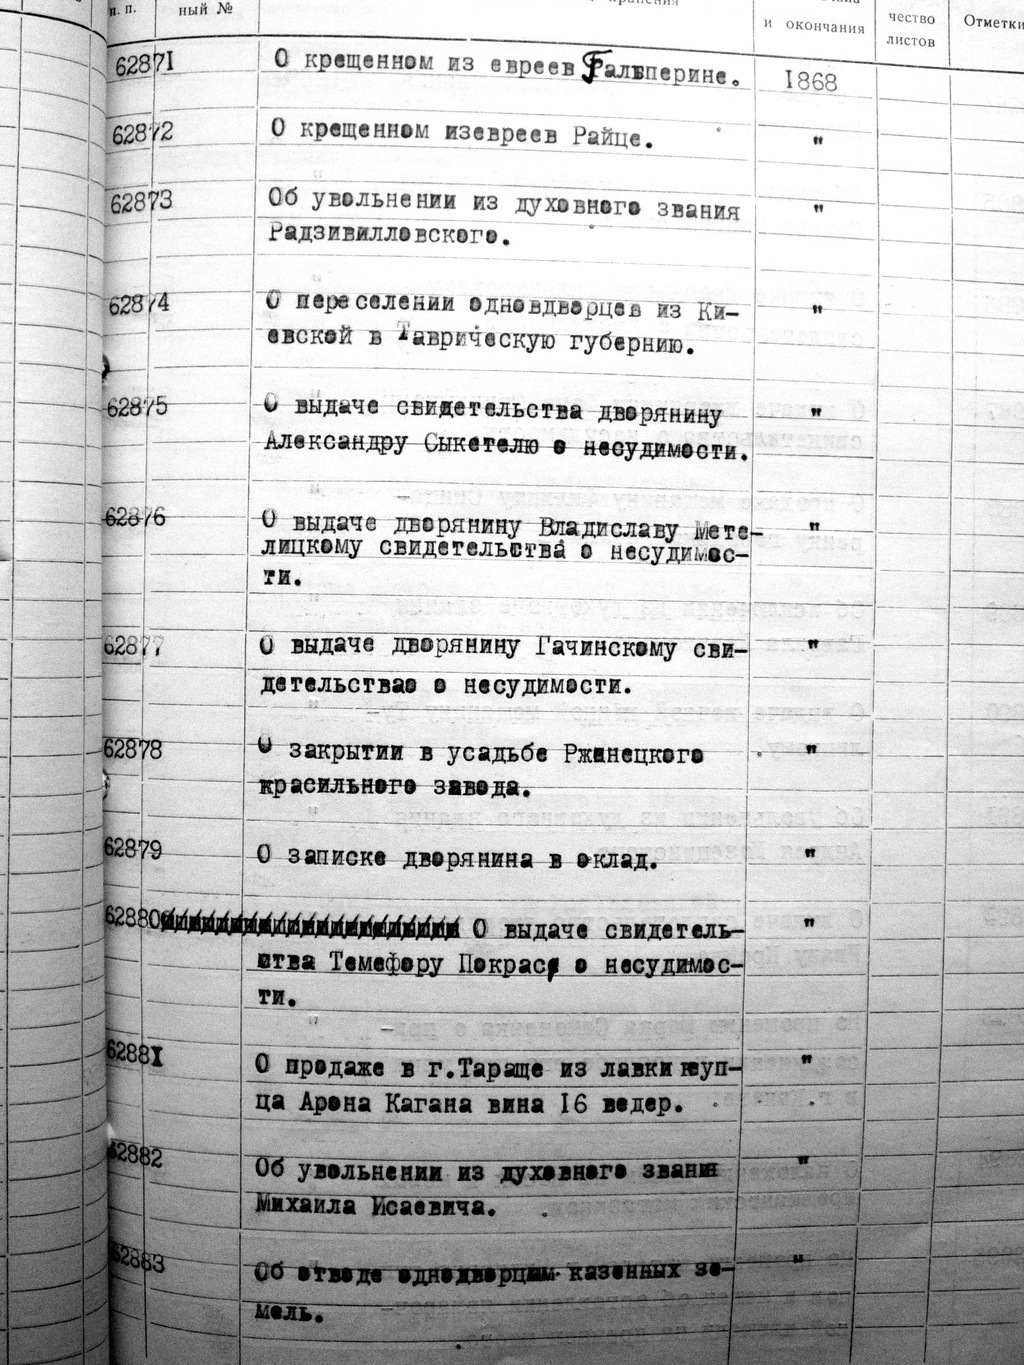 п. п. ный №
и окончания
чество
листов
Отметки
62871 О крещенном из евреев Гальперине. 1868
62872 О крещенном изевреев Райце. "
62873 Об увольнении из духовного звания "
Радзивилловского.
62874 О переселении одновдворцев из Ки- "
евской в Таврическую губернию.
62875 О выдаче свидетельства дворянину "
Александру Сыкетелю о несудимости.
62876 О выдаче дворянину Владиславу Мете- "
лицкому свидетельства о несудимос-
ти.
62877 О выдаче дворянину Гачинскому сви- "
детельствао о несудимости.
62878 О закрытии в усадьбе Ржанецкого "
красильного завода.
62879 О записке дворянина в оклад. "
62880 О выдаче свидетель- "
ства Темефору Покрасу о несудимос-
ти.
62881 О продаже в г.Тараще из лавки куп- "
ца Арона Кагана вина 16 ведер.
62882 Об увольнении из духовного звания "
Михаила Исаевича.
62883 Об отводе однодворцам казенных зе- "
мель.